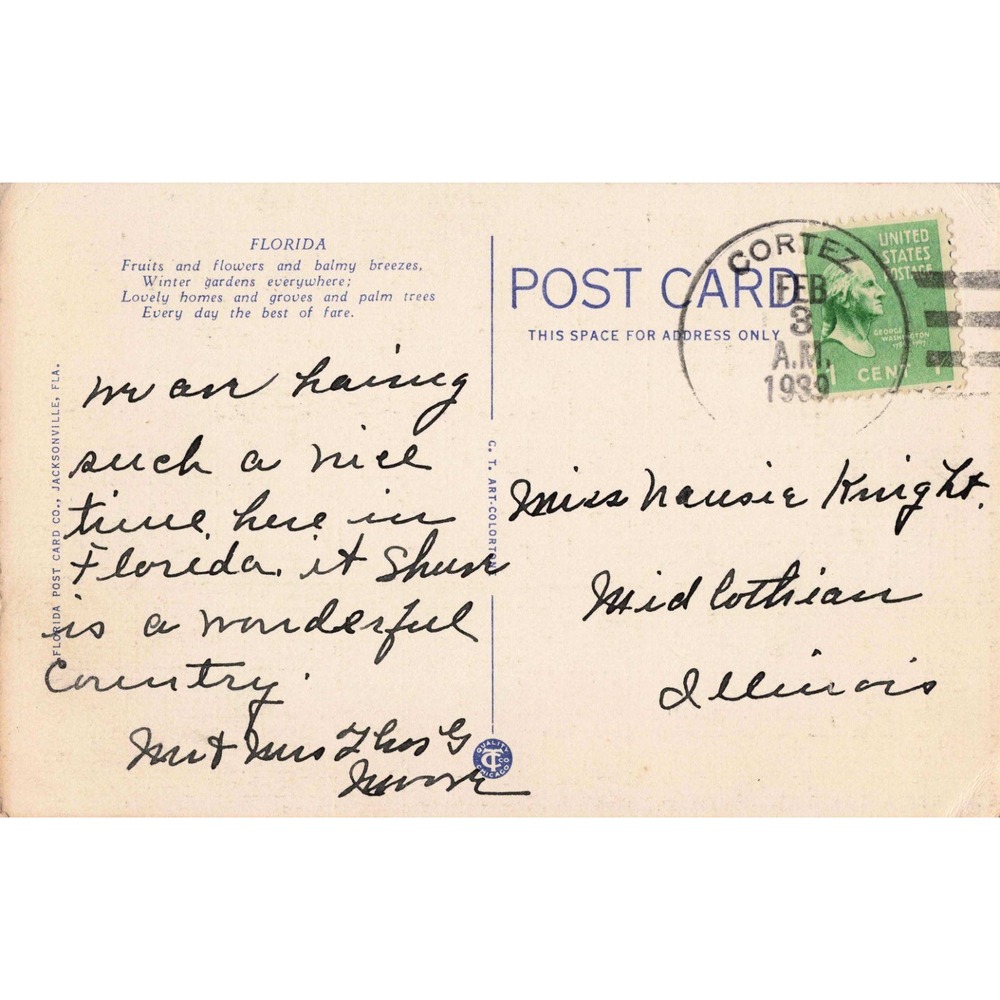 FLORIDA
Fruits and flowers and balmy breezes,
Winter gardens everywhere;
Lovely homes and groves and palm trees
Every day the best of fare.
we are haing
such a nice
time here in
Florida. it Shure
is a wonderful
Country.
Mr & Mrs Thos G
Moore
FLORIDA POST CARD CO., JACKSONVILLE, FLA.
C. T. ART-COLORTONE
QUALITY
CT CO
CHICAGO
POST CARD
THIS SPACE FOR ADDRESS ONLY
CORTEZ
FEB
3
A.M.
1939
UNITED
STATES
POSTAGE
GEORGE
WASHINGTON
1 CENT 1
Miss Nausie Knight.
Midlothian
Illinois